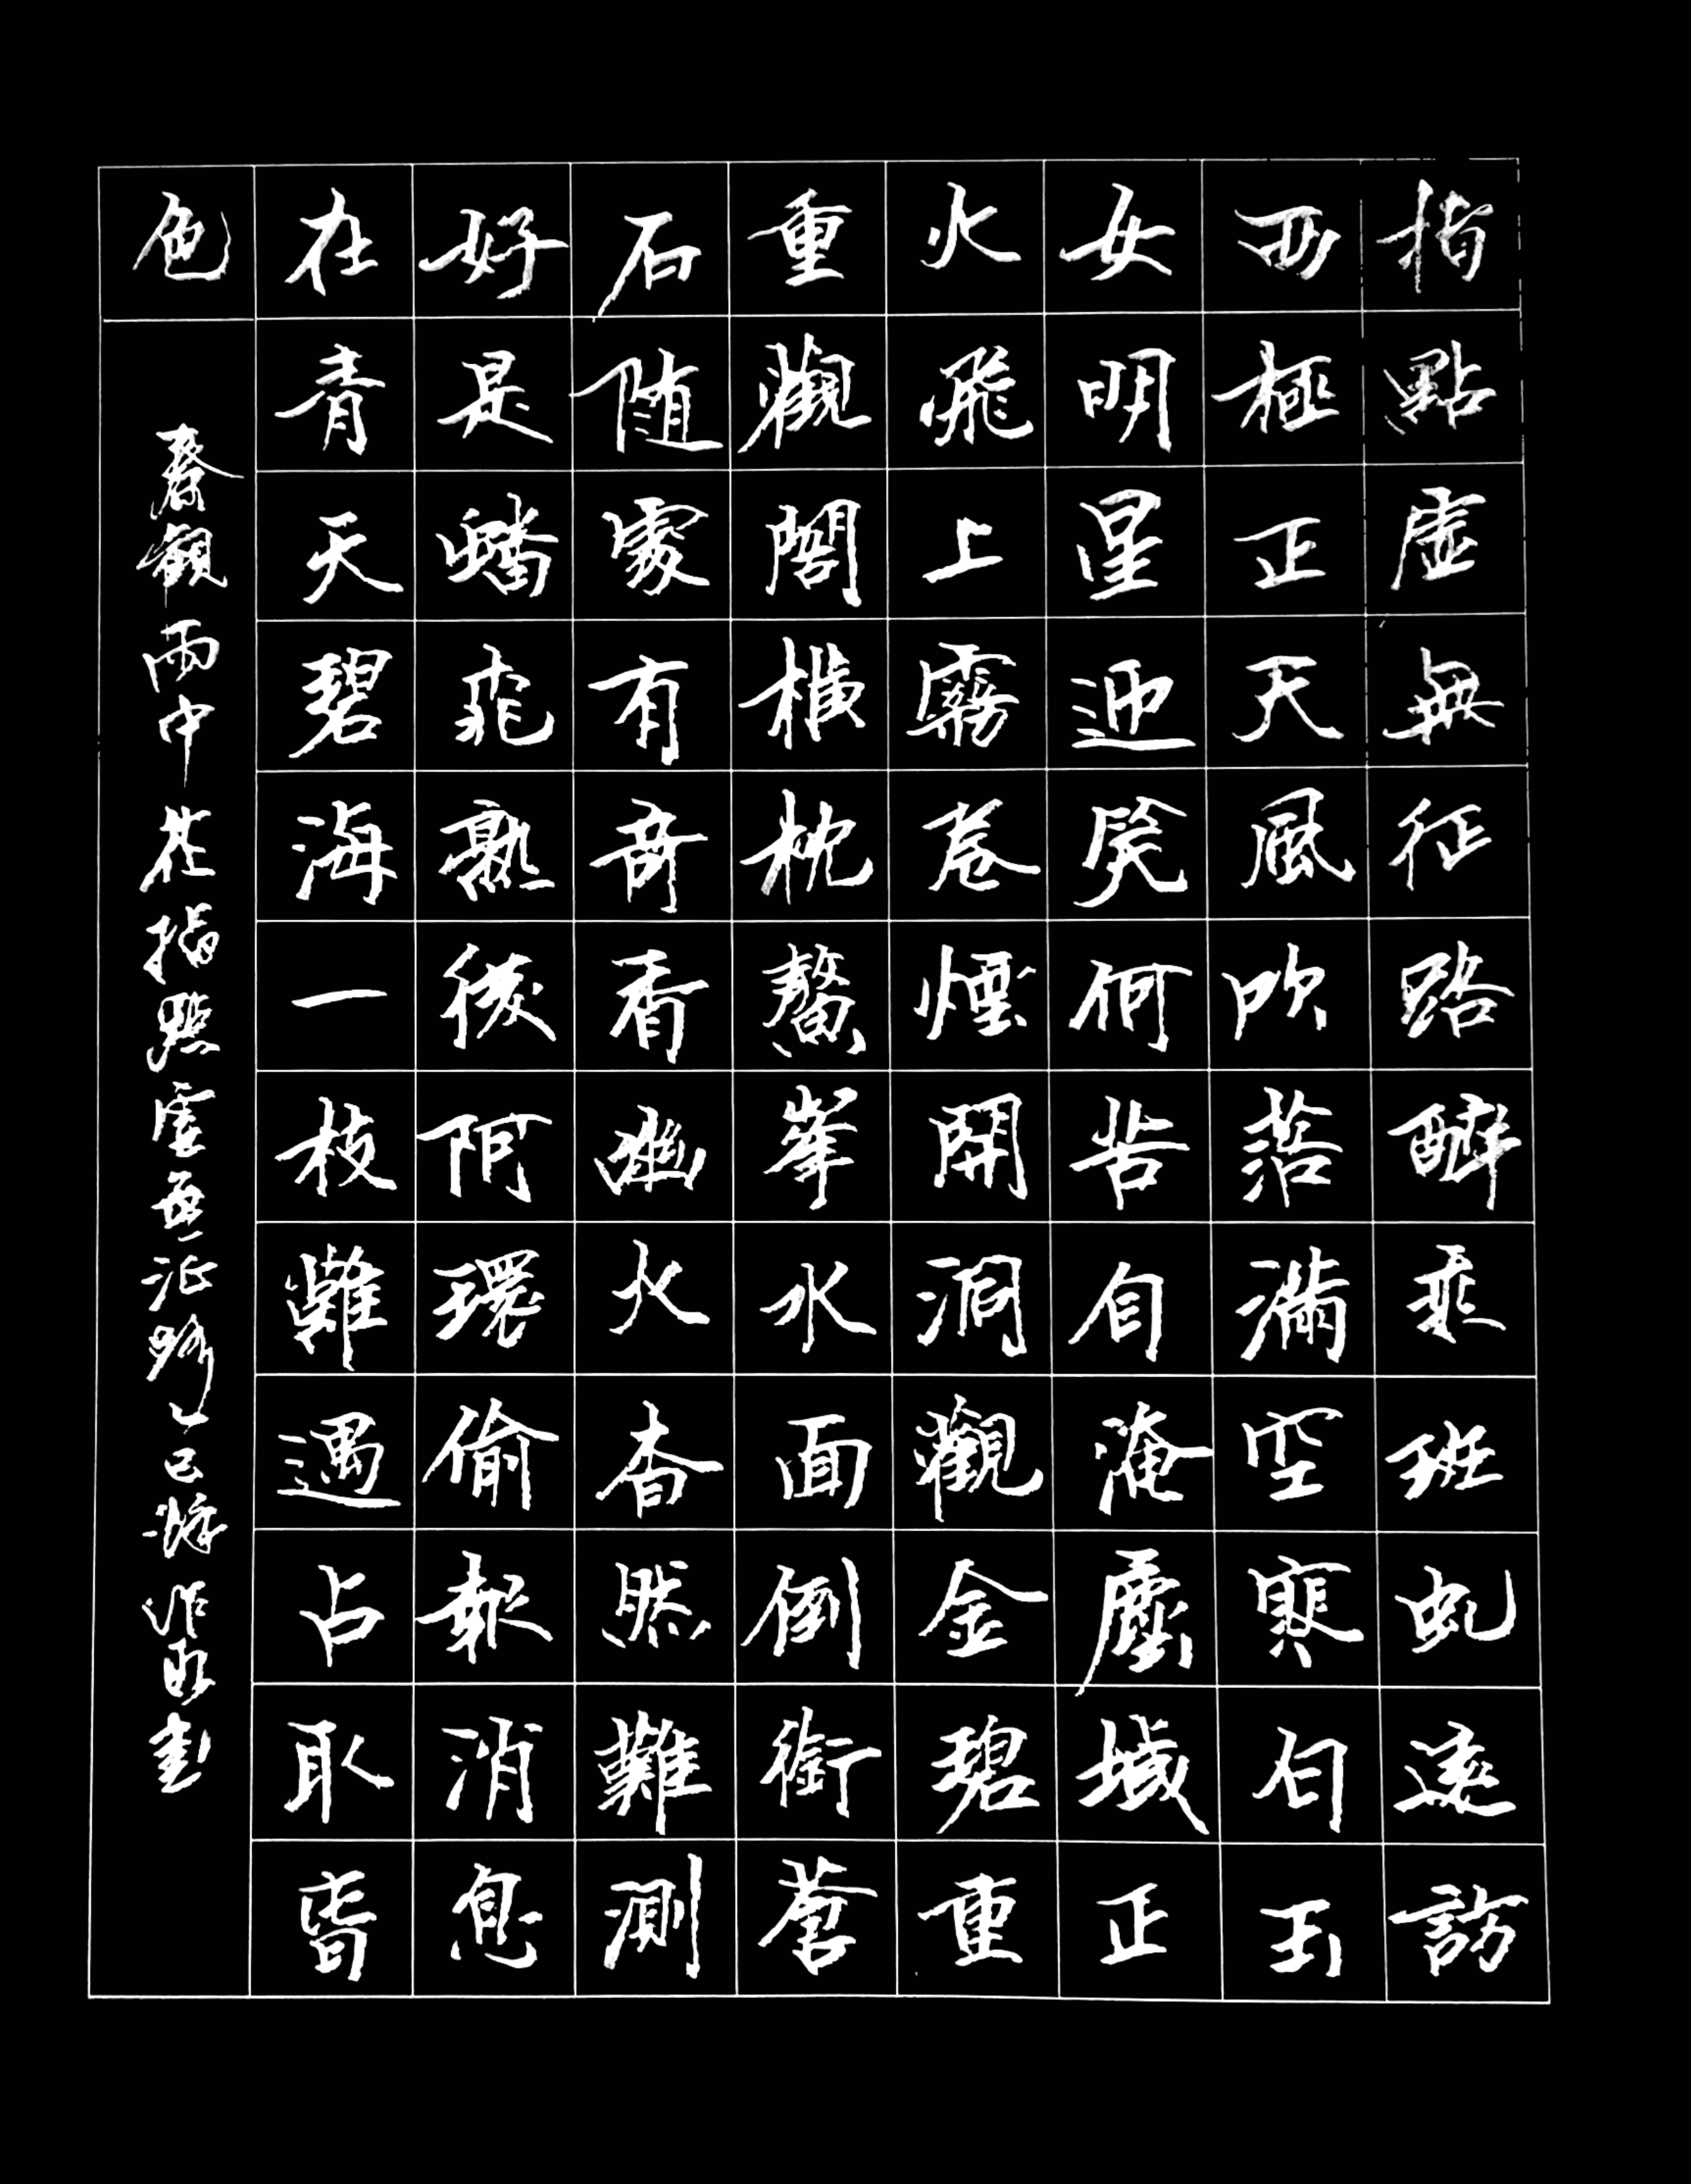 指點虛無征路醉乘班虬遠訪
西極正天風吹落滿空寒白玉
女明星迎笑何苦自淹塵域正
火飛上霧卷煙開洞觀金碧重
重觀閣橫枕鰲峯水面倒銜蒼
石隨處有奇香幽火杳然難測
好是蟠桃熟後阿環偷報消息
在青天碧海一枝難遇占取春
色
秦觀雨中花指點虛無征路乙巳書